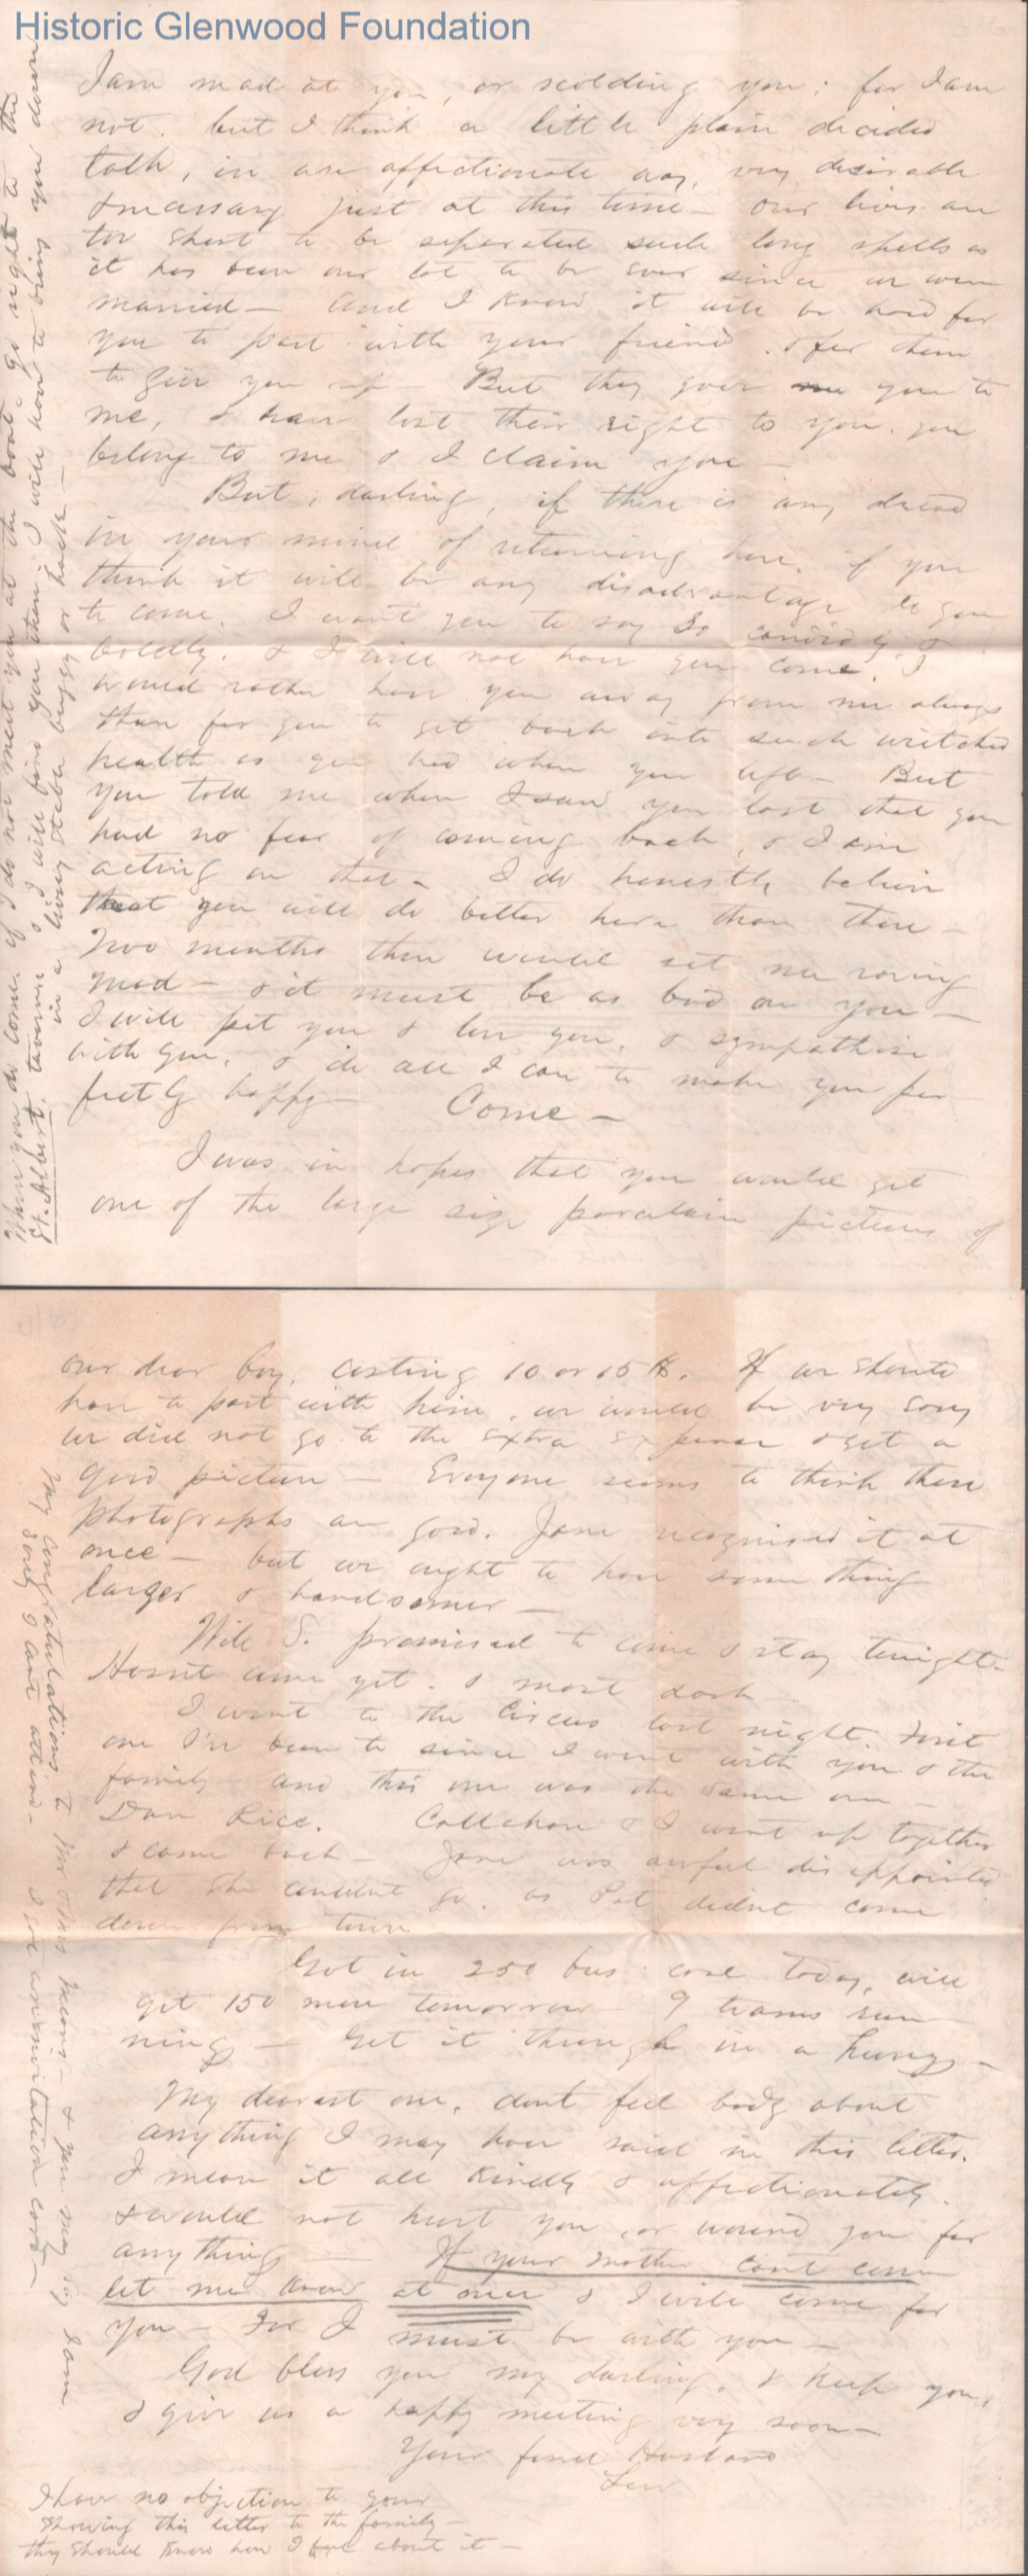 Historic Glenwood Foundation
I am mad at you, or scolding you; for I am
not. but I think a little plain decided
talk, in an affectionate way, very desirable
& necessary just at this time – Our lives are
too short to be separated such long spells as
it has been our lot to be ever since we were
married – And I know it will be hard for
you to part with your friend & for them
to give you up – But they gave me you to
me, & have lost their right to you. you
belong to me & I claim you –
But, darling, if there is any dread
in your mind of returning here, if you
think it will be any disadvantage to you
to come, I want you to say so candidly &
boldly. & I will not have you come. I
would rather have you away from me always
than for you to get back into such wretched
health as you had when you left – But
you told me when I saw you last that you
had no fear of coming back, & I am
acting on that – I do honestly believe
that you will do better here than there –
Two months there would set me raving
mad – & it must be as bad on you –
I will pet you & love you, & sympathise
with you, & do all I can to make you per
fectly happy – Come –
I was in hopes that you would get
one of the large size porcelain pictures of
When you do come if I do not meet you at the boat, go right to the
St. Albert. taverne & I will find you there; I will have to bring you down
in a livery stable buggy or hack –
our dear boy, costing 10 or 15 $. If we should
have to part with him, we would be very sorry
we did not go to the extra expense & get a
good picture – Everyone seems to think these
photographs are good. Jane recognised it at
once – but we ought to have some thing
larger & handsomer –
Will S. promised to come & stay tonight –
Hasn't come yet. & most dark
I went to the Circus last night. First
one I've been to since I went with you & the
family – and this one was the same one –
Dan Rice. Callahan & I went up together
& came back – Jane was awful disappointed
that she couldnt go, as Pat didnt come
down from town
Got in 250 bus coal today, will
get 150 more tomorrow 9 teams run
ning – Get it through in a hurry –
My dearest one, dont feel bad about
anything I may have said in this letter.
I mean it all kindly & affectionately.
& would not hurt you, or wound you for
anything – If your mother cant come
let me know at once & I will come for
you – For I must be with you –
God bless you my darling, & keep you,
& give us a happy meeting very soon –
Your fond Husband
Lew
My congratulations to Mr & Mrs – & you may say I am
sorry I cant attend – I got an invitation card –
I have no objection to your
showing this letter to the family –
they should know how I feel about it –